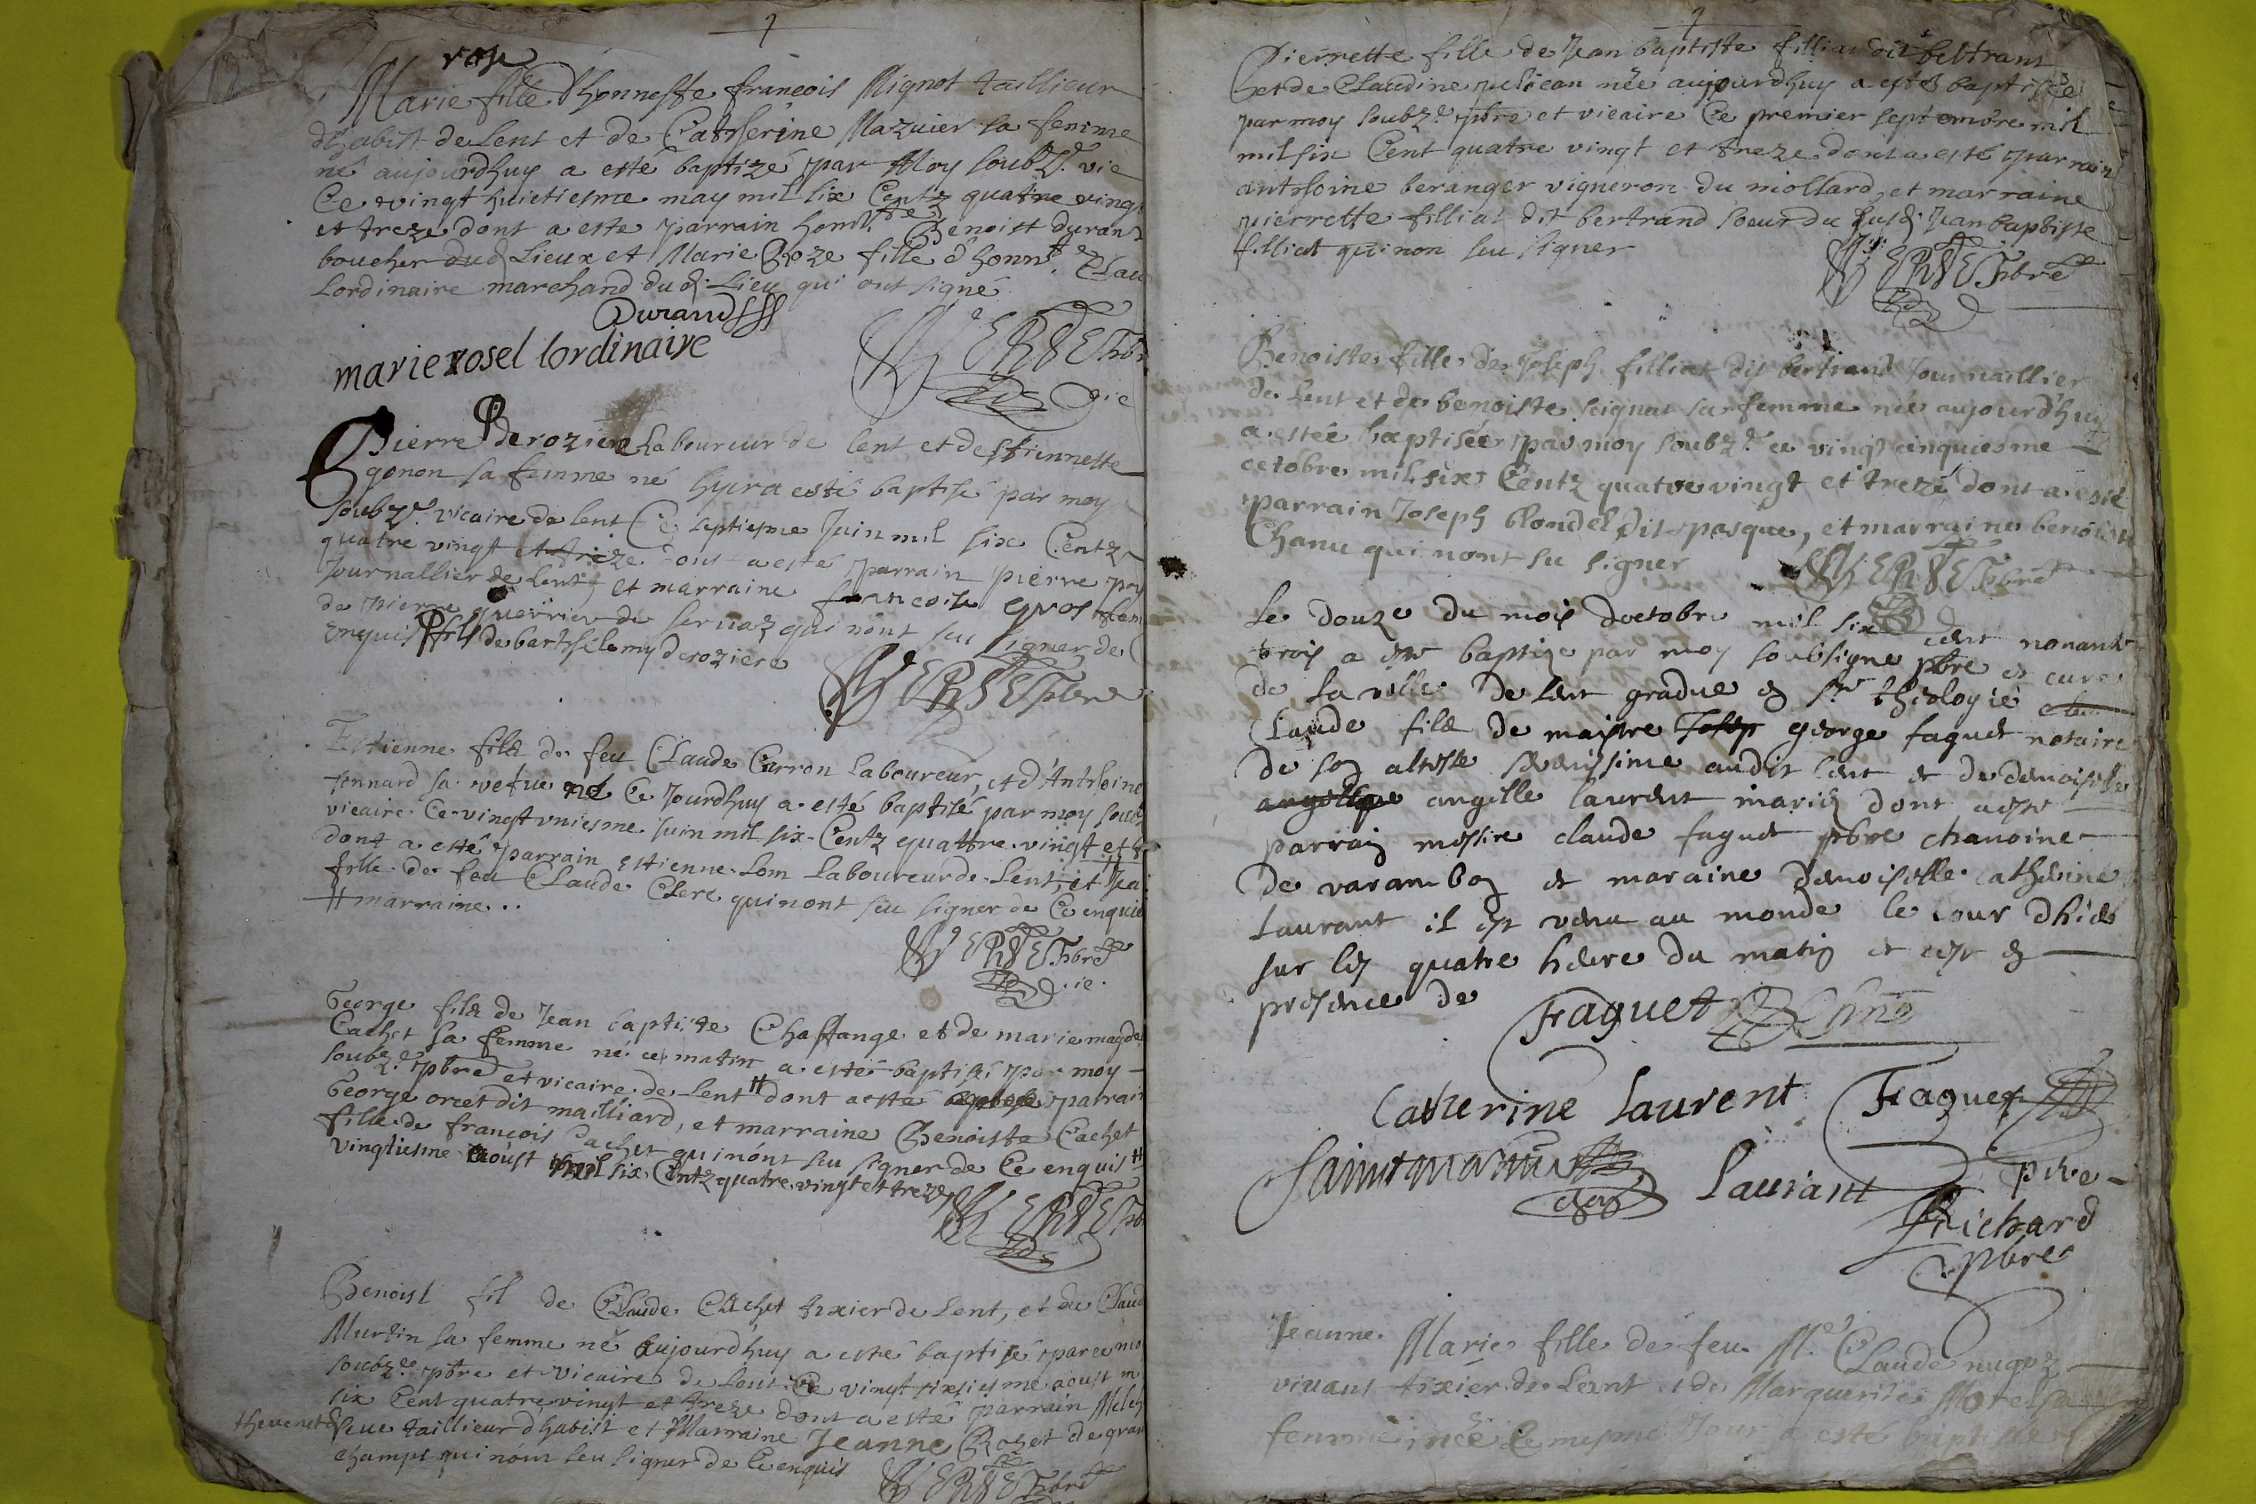 rose
Marie fille d'honneste francois Mignot taillieur
d'habist de Lent et de Catherine Mazuier sa femme
né aujourdhuy a esté baptizé par Moy soubz.é vic
Ce vingt huictiesme may mil six Centz quatre vingt
et treze dont a este parrain hon.ble Benoist durand
boucher dud Lieux et Marie Roze fille d'honn.te Clau
Lordinaire marchand dud. Lieu qui ont signé
Durand
marie rosel lordinaire
vic
Pierre deroziere Laboureur de lent et destiennette
gonon sa femme né hyer a esté baptisé par moy
soubz.é vicaire de lent Ce septiesme Juin mil six Centz
quatre vingt et treze dont a esté parrain pierre
Journallier de Lent, et marraine francoise gros
de pierre guerrier de seruaz qui nont seu signer de
enquis fils de barthelemy deroziere
pbre
Estienne filz de feu Claude Carron Laboureur, et d'Anthoine
sa vefue né Ce Jourdhuy a esté baptisé par moy soub
vicaire Ce vingt vniesme Juin mil six Centz quattre vingt et
dont a esté parrain estienne Lom Laboureur de Lent, et Jea
fille de feu Claude Clerc qui nont seu signer de Ce enquis
# marraine..
pbre
vic.
George filz de Jean baptiste Chassange et de marie magde
Cachet sa femme né ce matin a esté baptisé par moy
soubz.é pbre et vicaire de Lent # dont a esté parrain
George orcet dit mailliard, et marraine Benoiste Cachet
fille de francois Cachet qui nónt seu signer de Ce enquis #
vingtiesme aoust mil six Centz quatre vingt et treze
Benoist fil de Claude Cachet tixier de Lent, et de Claud
Murtin sa femme né aujourd'huy a esté baptisé par moy
soubz.é pbre et vicaire de Lent Ce vingt sixsiesme aoust m
six Cent quatre vingt et treze dont a esté parrain
theuenet taillieur d'habist et Marraine Jeanne Rozet de gran
champs qui nónt seu signer de Ce enquis
pbre
Pierrette fille de Jean baptiste filliat dit beltrant
et de Claudine pelican née aujourdhuy a esté baptisée
par moy soubz.é pbre et vicaire Ce premier septembre mil
mil six Cent quatre vingt et treze dont a esté parrain
anthoine beranger vigneron du mollard, et marraine
pierrette filliat dit bertrand soeur du susd. Jean baptiste
filliat qui non seu signer
pbre
Benoiste fille de Joseph filliat dit bertrand Journaillier
de Lent et de benoiste seignat sa femme née aujourd'huy
a esteé baptisée par moy soubz.é ce vingt cinquiesme
octobre mil six Centz quatre vingt et treze dont a esté
parrain Joseph blondel dit pasque, et marraine benoiste
Chanu qui nont su signer
pbre
Le douze du mois doctobre mil six cent nonante
trois a este baptize par moy soubsigne pbre et cure
de la ville de lent gradue en s.te theologie
Claude filz de maistre george faguet notaire
de son altesse serenissime audit lent et de demoiselle
angelique angille laurent maries dont a este
parrain messire claude faguet pbre chanoine
de varambon et maraine demoiselle catherine
laurant il est venu au monde le jour dhier
sur les quatre heure du matin et cest en
presence de
Faguet chne
Catherine laurent Faguet
Saintmartin Laurant pere
Richard
pbre
Jeanne Marie fille de feu M.e Claude
viuant tixier de Lent et de Marguerite Morel sa
femme née Ce mesme Jour a esté baptisée